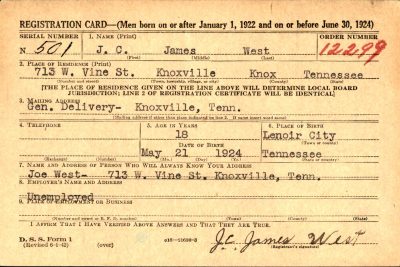 REGISTRATION CARD—(Men born on or after January 1, 1922 and on or before June 30, 1924)
SERIAL NUMBER 1. NAME (Print) ORDER NUMBER
N 501 J. C. James West 12299
(First) (Middle) (Last)
2. PLACE OF RESIDENCE (Print)
713 W. Vine St. Knoxville Knox Tennessee
(Number and street) (Town, township, village, or city) (County) (State)
[THE PLACE OF RESIDENCE GIVEN ON THE LINE ABOVE WILL DETERMINE LOCAL BOARD
JURISDICTION; LINE 2 OF REGISTRATION CERTIFICATE WILL BE IDENTICAL]
3. MAILING ADDRESS
Gen. Delivery- Knoxville, Tenn.
[Mailing address if other than place indicated on line 2. If same insert word same]
4. TELEPHONE 5. AGE IN YEARS 6. PLACE OF BIRTH
18 Lenoir City
DATE OF BIRTH (Town or county)
May 21 1924 Tennessee
(Exchange) (Number) (Mo.) (Day) (Yr.) (State or country)
7. NAME AND ADDRESS OF PERSON WHO WILL ALWAYS KNOW YOUR ADDRESS
Joe West- 713 W. Vine St. Knoxville, Tenn.
8. EMPLOYER'S NAME AND ADDRESS
Unemployed
9. PLACE OF EMPLOYMENT OR BUSINESS
(Number and street or R. F. D. number) (Town) (County) (State)
I AFFIRM THAT I HAVE VERIFIED ABOVE ANSWERS AND THAT THEY ARE TRUE.
D. S. S. Form 1
(Revised 6-9-42) (over) J.C. James West
(Registrant's signature)